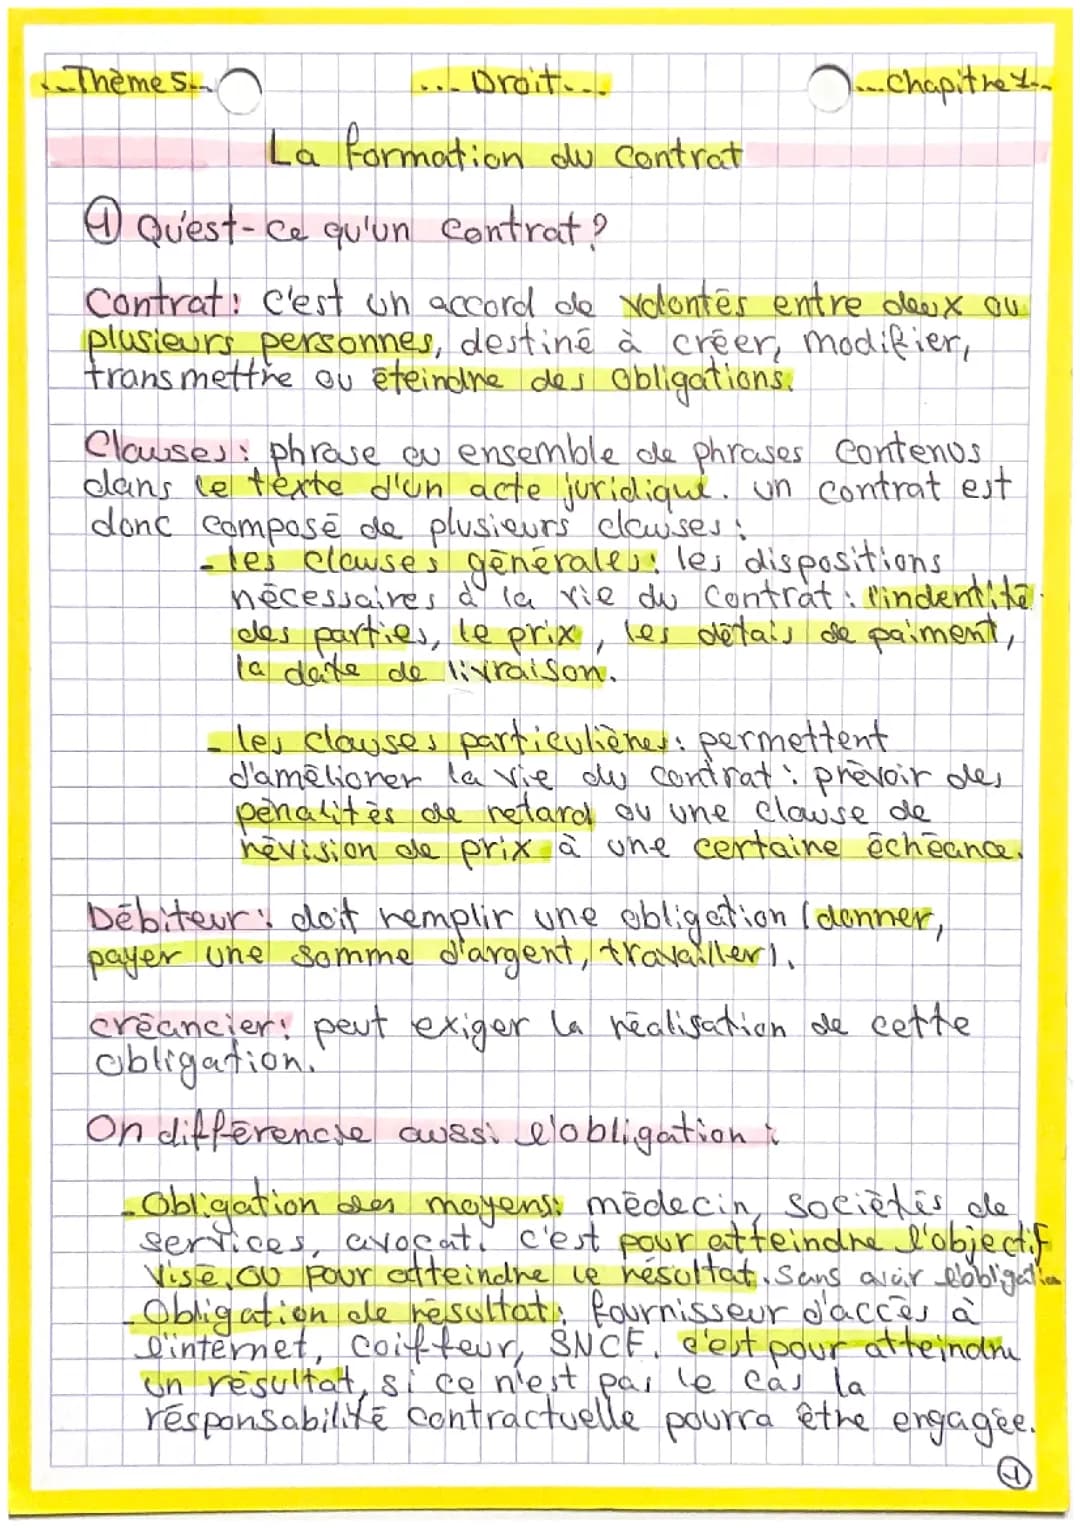 Thème 5
Droit
Chapitre 1
La formation du contrat
① Qu'est-ce qu'un contrat?
Contrat: c'est un accord de volontés entre deux ou
plusieurs personnes, destiné à créer, modifier,
transmettre ou éteindre des obligations.
Clauses: phrase ou ensemble de phrases contenus
dans le texte d'un acte juridique. un contrat est
donc composé de plusieurs clauses:
- les clauses générales: les dispositions
nécessaires à la vie du contrat: l'indentité
des parties, le prix, les détais de paiment,
la date de livraison.
- les clauses particulières: permettent
d'améliorer la vie du contrat: prévoir des
pénalités de retard ou une clause de
révision de prix à une certaine échéance.
Débiteur: doit remplir une obligation (donner,
payer une somme d'argent, travailler).
créancier: peut exiger la réalisation de cette
obligation.
On différencie aussi l'obligation:
- Obligation des moyens: médecin, sociétés de
services, avocat. c'est pour atteindre l'objectif
visé, ou pour atteindre le résultat. Sans avoir l'obligation
- Obligation de résultat: fournisseur d'accès à
l'internet, coiffeur, SNCF. c'est pour atteindre
un résultat, si ce n'est pas le cas la
résponsabilité contractuelle pourra être engagée.
①